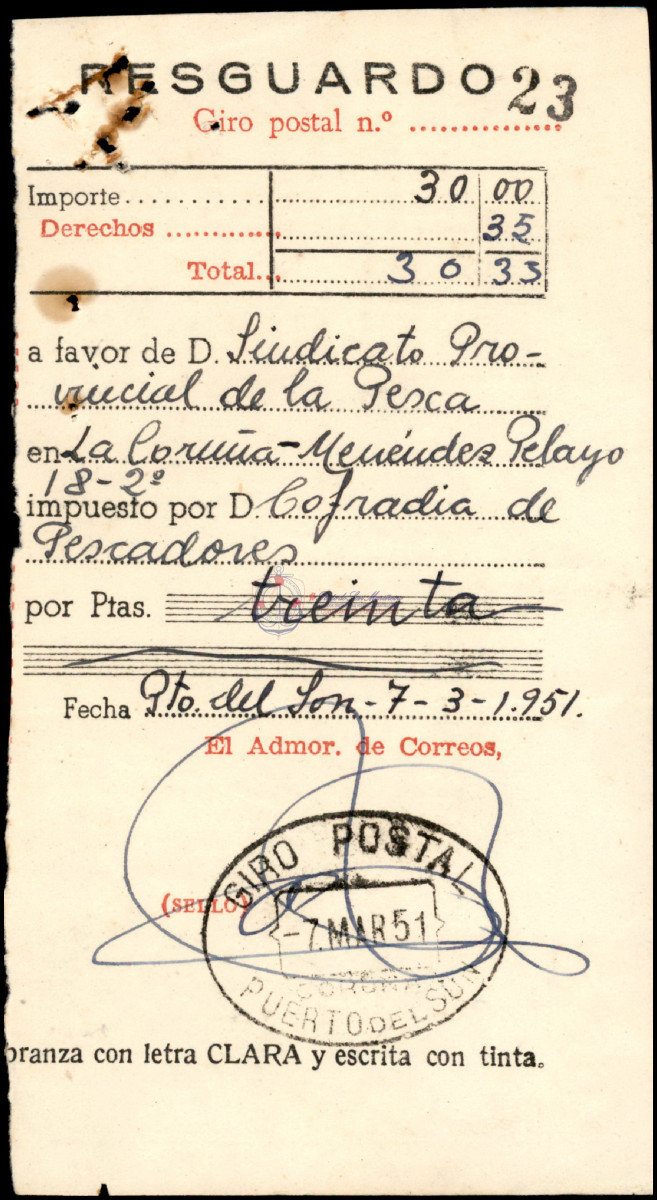 RESGUARDO 23
Giro postal n.º ................
Importe........... 30 00
Derechos ............ 35
Total... 30 35
a favor de D. Sindicato Pro-
vincial de la Pesca
en La Coruña-Menéndez Pelayo
18-2º
impuesto por D. Cofradia de
Pescadores
por Ptas. treinta
Fecha Pto. del Son-7-3-1.951.
El Admor. de Correos,
(SELLO)
GIRO POSTAL
-7.MAR 51
CORUÑA
PUERTO DEL SON
branza con letra CLARA y escrita con tinta.